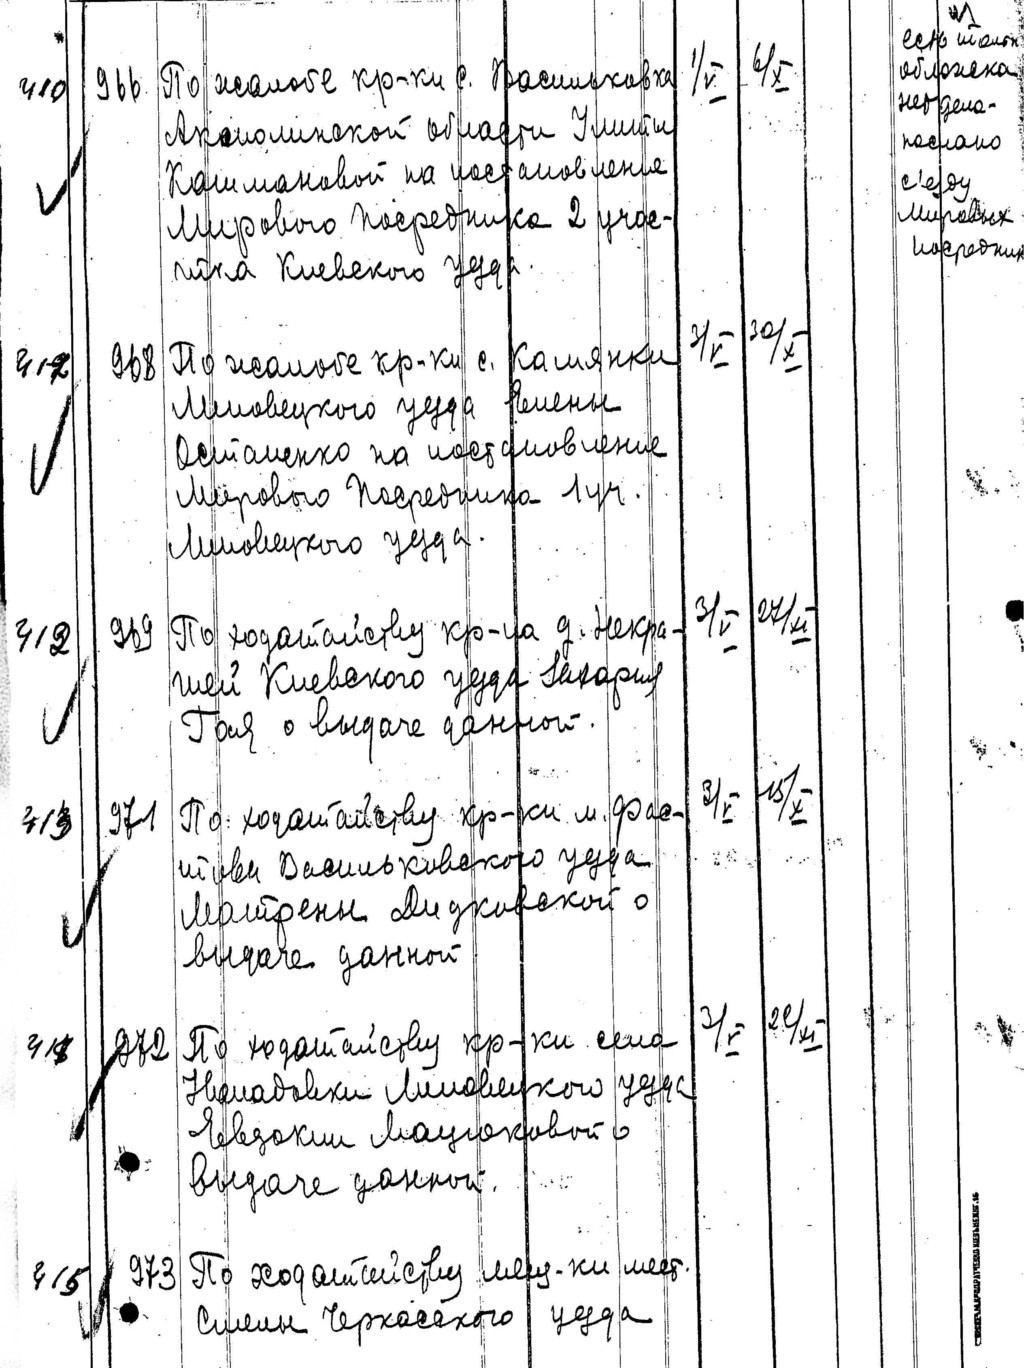 410 966 По жалобе кр-ки с. Васильковка 1/V 6/X
Акмолинской области Улиты
Кашмановой на постановление
Мирового Посредника 2 учас-
тка Киевского уезда.
есть только
обложка
нет дела-
послано
с'езду
Мировых
посредник
412 968 По жалобе кр-ки с. Камянки 3/V 30/X
Липовецкого уезда Елены
Остапенко на постановление
Мирового Посредника 1 уч.
Липовецкого уезда.
412 969 По ходатайству кр-на д. Некра- 3/V 27/XI
шей Киевского уезда Захария
Гоя о выдаче данной.
413 971 По ходатайству кр-ки м. Фас- 3/V 15/X
това Васильковского уезда
Матрены Дидковской о
выдаче данной
414 972 По ходатайству кр-ки села 3/V 29/XI
Липовецкого уезда
Евдокии Мацюковой о
выдаче данной.
415 973 По ходатайству мещ-ки мест.
Смелы Черкасского уезда